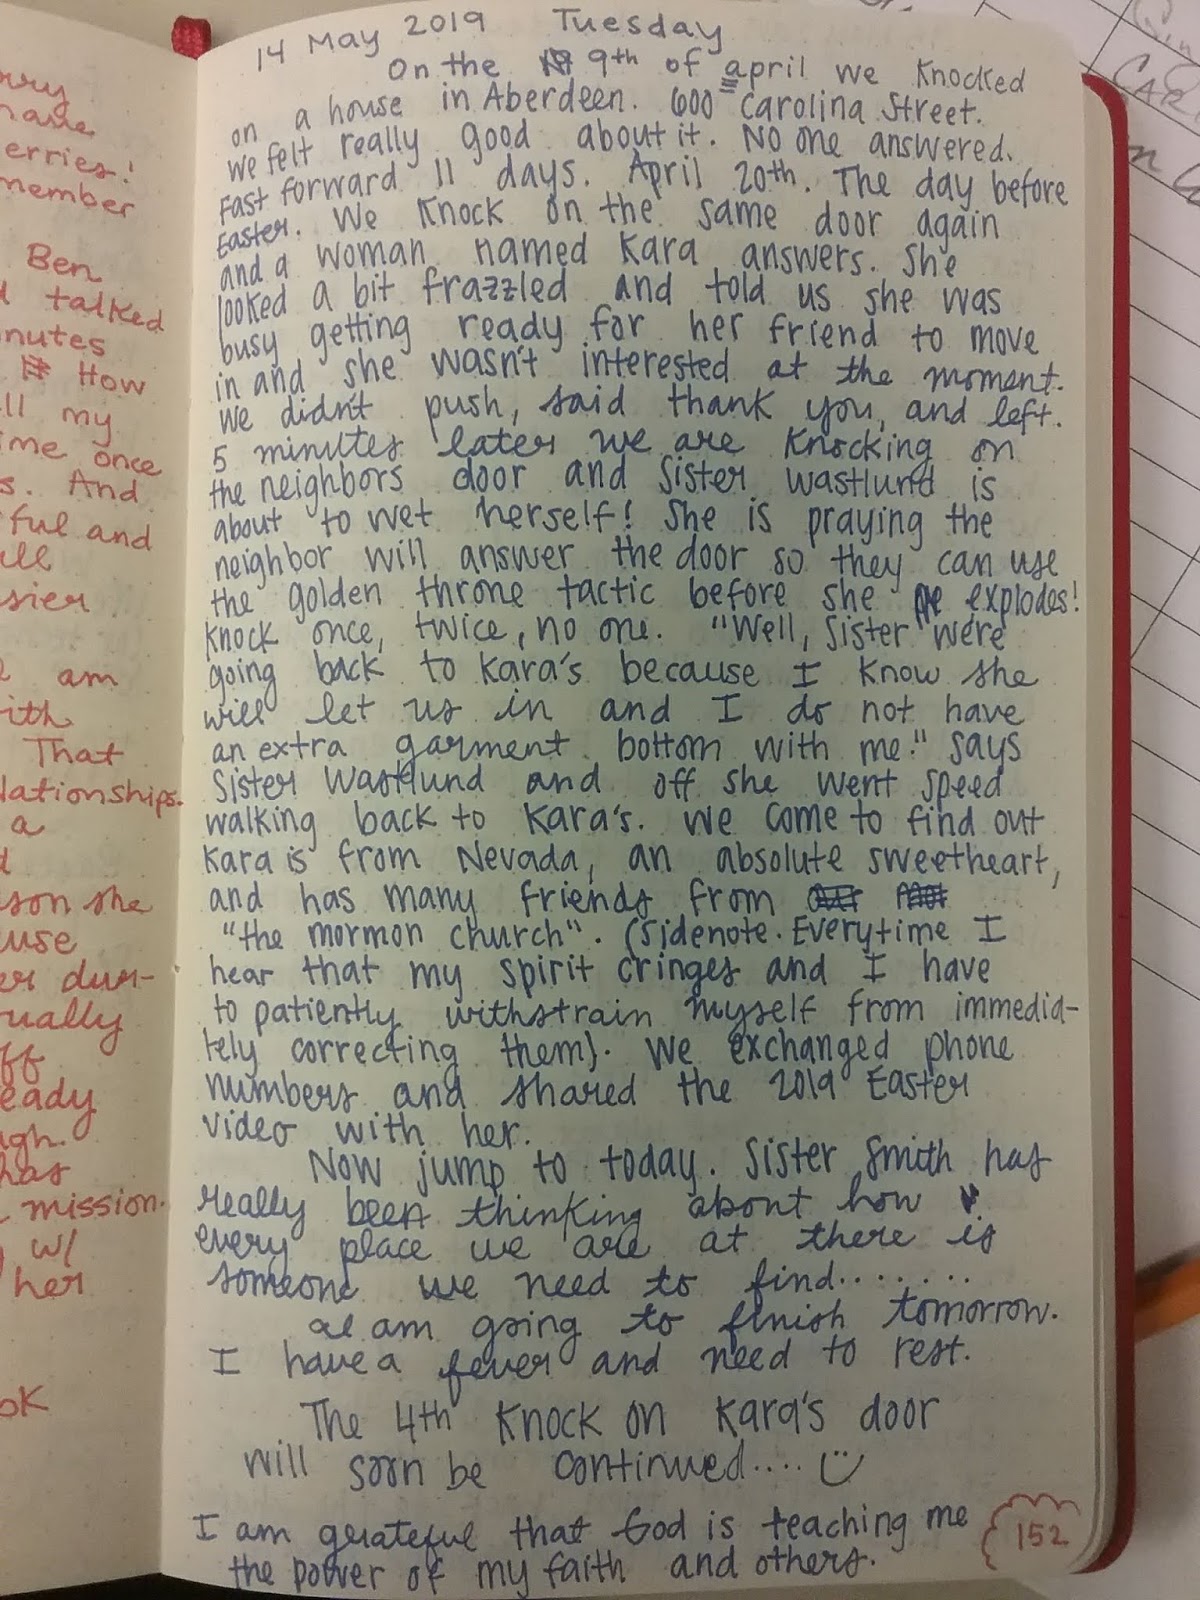 14 May 2019 Tuesday
On the 9th of april we knocked
on a house in Aberdeen. 600 Carolina Street.
we felt really good about it. No one answered.
Fast forward 11 days. April 20th. The day before
Easter. We knock on the same door again
and a woman named Kara answers. She
looked a bit frazzled and told us she was
busy getting ready for her friend to move
in and she wasn't interested at the moment.
we didn't push, said thank you, and left.
5 minutes later we are knocking on
the neighbors door and Sister Wastlund is
about to wet herself! She is praying the
neighbor will answer the door so they can use
the golden throne tactic before she explodes!
Knock once, twice, no one. "Well, Sister were
going back to Kara's because I know she
will let us in and I do not have
an extra garment bottom with me." says
Sister Wastlund and off she went speed
walking back to Kara's. We come to find out
Kara is from Nevada, an absolute sweetheart,
and has many friends from
"the mormon church". (Sidenote. Everytime I
hear that my spirit cringes and I have
to patiently withstrain myself from immedia-
tely correcting them). We exchanged phone
numbers and shared the 2019 Easter
video with her.
Now jump to today. Sister Smith has
really been thinking about how
every place we are at there is
someone we need to find.......
I am going to finish tomorrow.
I have a fever and need to rest.
The 4th Knock on Kara's door
will soon be continued....
I am grateful that God is teaching me
the power of my faith and others.
152
member
Ben
talked
How
my
once
And
and
am
That
a
she
mission.
w/
her